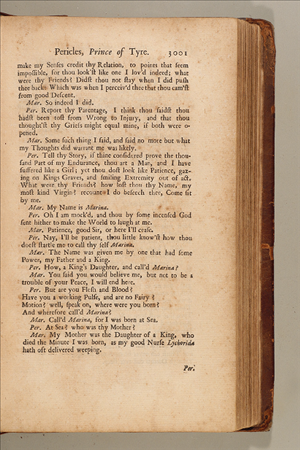 Pericles, Prince of Tyre. 3001
make my Senses credit thy Relation, to points that seem
impossible, for thou look'st like one I lov'd indeed; what
were thy Friends? Didst thou not stay when I did push
thee back? Which was when I perceiv'd thee that thou cam'st
from good Descent.
Mar. So indeed I did.
Per. Report thy Parentage, I think thou saidst thou
hadst been tost from Wrong to Injury, and that thou
thought'st thy Griefs might equal mine, if both were o-
pened.
Mar. Some such thing I said, and said no more but what
my Thoughts did warrant me was likely.
Per. Tell thy Story, if thine consider'd prove the thou-
sand Part of my Endurance, thou art a Man, and I have
suffered like a Girl; yet thou dost look like Patience, gaz-
ing on Kings Graves, and smiling Extremity out of act.
What were thy Friends? how lost thou thy Name, my
most kind Virgin? recount I do beseech thee, Come sit
by me.
Mar. My Name is Marina.
Per. Oh I am mock'd, and thou by some incensed God
sent hither to make the World to laugh at me.
Mar. Patience, good Sir, or here I'll cease.
Per. Nay, I'll be patient, thou little know'st how thou
dost startle me to call thy self Marina.
Mar. The Name was given me by one that had some
Power, my Father and a King.
Per. How, a King's Daughter, and call'd Marina?
Mar. You said you would believe me, but not to be a
trouble of your Peace, I will end here.
Per. But are you Flesh and Blood?
Have you a working Pulse, and are no Fairy?
Motion? well, speak on, where you born?
And wherefore call'd Marina?
Mar. Call'd Marina, for I was born at Sea.
Per. At Sea? who was thy Mother?
Mar. My Mother was the Daughter of a King, who
died the Minute I was born, as my good Nurse Lycherida
hath oft delivered weeping.
Per.